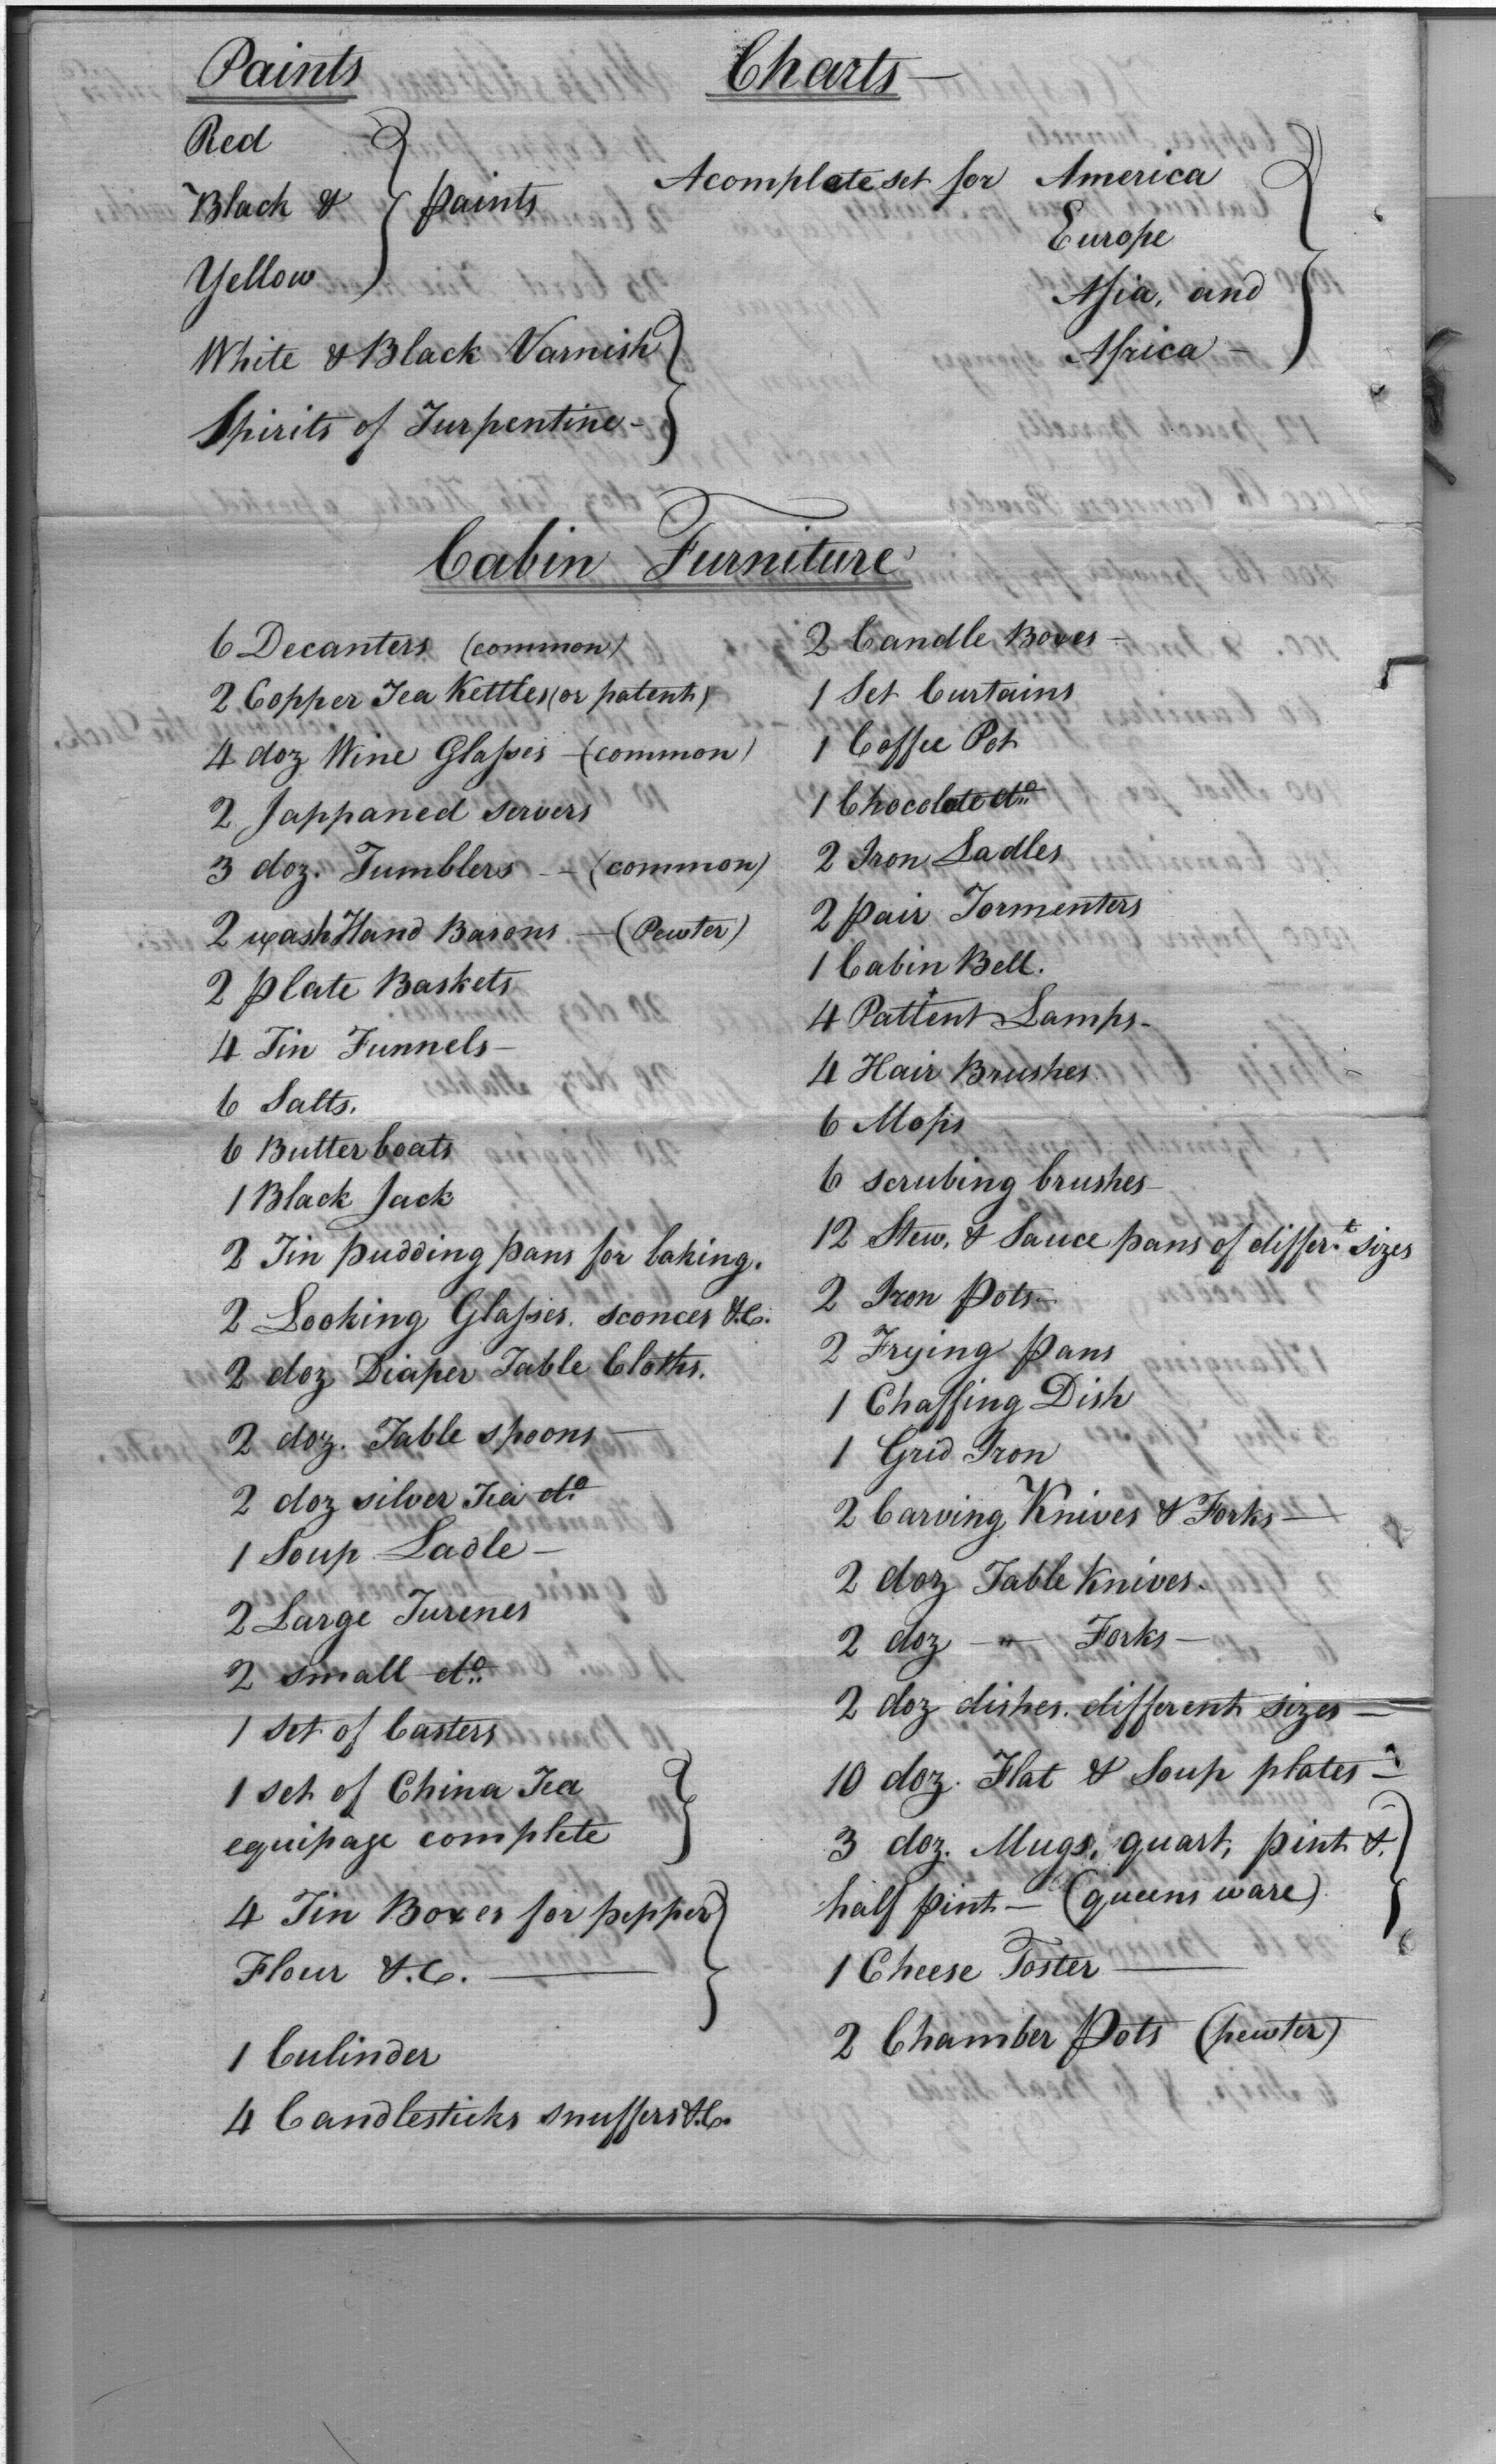 Paints
Red
Black &
Yellow
paints
White & Black Varnish
Spirits of Turpentine -
Charts —
A complete set for America
Europe
Asia, and
Africa -
Cabin Furniture
6 Decanters (common)
2 Copper Tea Kettles (or patent)
4 doz Wine Glasses — (common)
2 Jappaned servers
3 doz. Tumblers - - (common)
2 wash Hand Basons — (Pewter)
2 plate Baskets
4 Tin Funnels —
6 Salts.
6 Butter boats
1 Black Jack
2 Tin pudding pans for baking.
2 Looking Glasses. sconces &.C.
2 doz Diaper Table Cloths.
2 doz. Table spoons —
2 doz silver Tea do
1 Soup Ladle —
2 Large Turenes
2 small do
1 set of Casters
1 set of China Tea
equipage complete
4 Tin Boxes for pepper
Flour &.C. ———
1 Culinder
4 Candlesticks snuffers &.C.
2 Candle Boxes —
1 Set Curtains
1 Coffee Pot
1 Chocolate do
2 Iron Ladles
2 pair Tormenters
1 Cabin Bell.
4 Pattent Lamps -
4 Hair Brushes
6 Mops
6 scrubing brushes —
12 Stew, & Sauce pans of differ.t sizes
2 Iron Pots —
2 Frying pans
1 Chaffing Dish
1 Grid Iron
2 Carving Knives & Forks —
2 doz Table Knives.
2 doz — " — Forks —
2 doz dishes. different sizes —
10 doz. Flat & Soup plates —
3 doz. Mugs, quart, pint &.
half pint — (queens ware)
1 Cheese Toster ———
2 Chamber Pots (pewter)